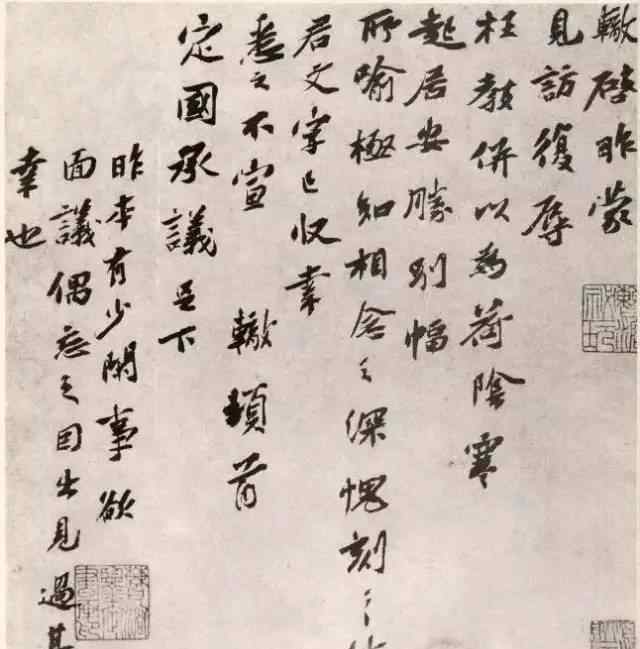 轍啓昨蒙
見訪復辱
枉教併以為荷陰寒
起居安勝別幅
所喻極知相念之深愧刻〻
君文字已収幸
悉之不宣 轍頓首
定國承議足下
昨本有少閑事欲
面議偶忘之因出見過甚
幸也